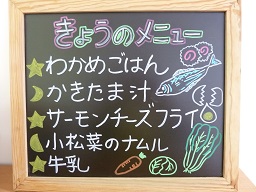 きょうのメニュー
わかめごはん
かきたま汁
サーモンチーズフライ
小松菜のナムル
牛乳